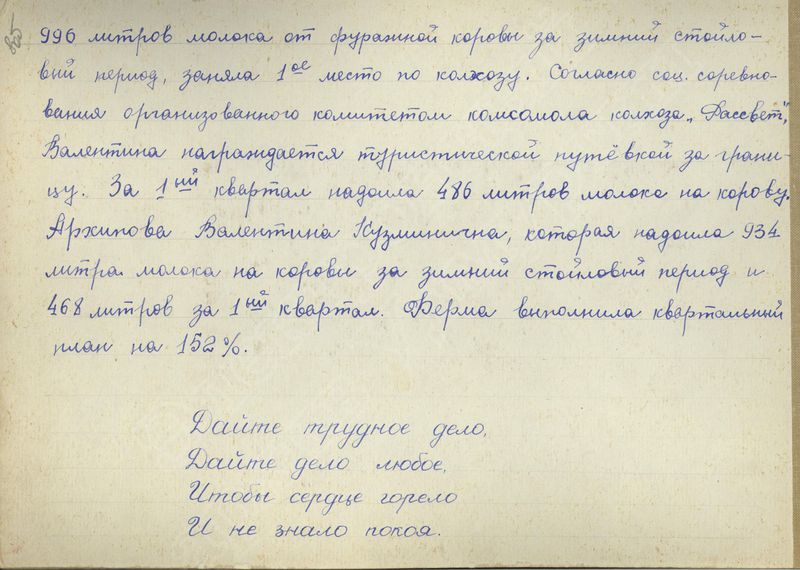 996 литров молока от фуражной коровы за зимний стойло-
вый период, заняла 1ое место по колхозу. Согласно соц. соревно-
вания организованного комитетом комсомола колхоза „Рассвет",
Валентина награждается туристической путёвкой за грани-
цу. За 1ный квартал надоила 486 литров молока на корову.
Архипова Валентина Кузминична, которая надоила 934
литра молока на коровы за зимний стойловый период и
468 литров за 1ный квартал. Ферма выполнила квартальный
план на 152%.
Дайте трудное дело,
Дайте дело любое,
Чтобы сердце горело
И не знало покоя.